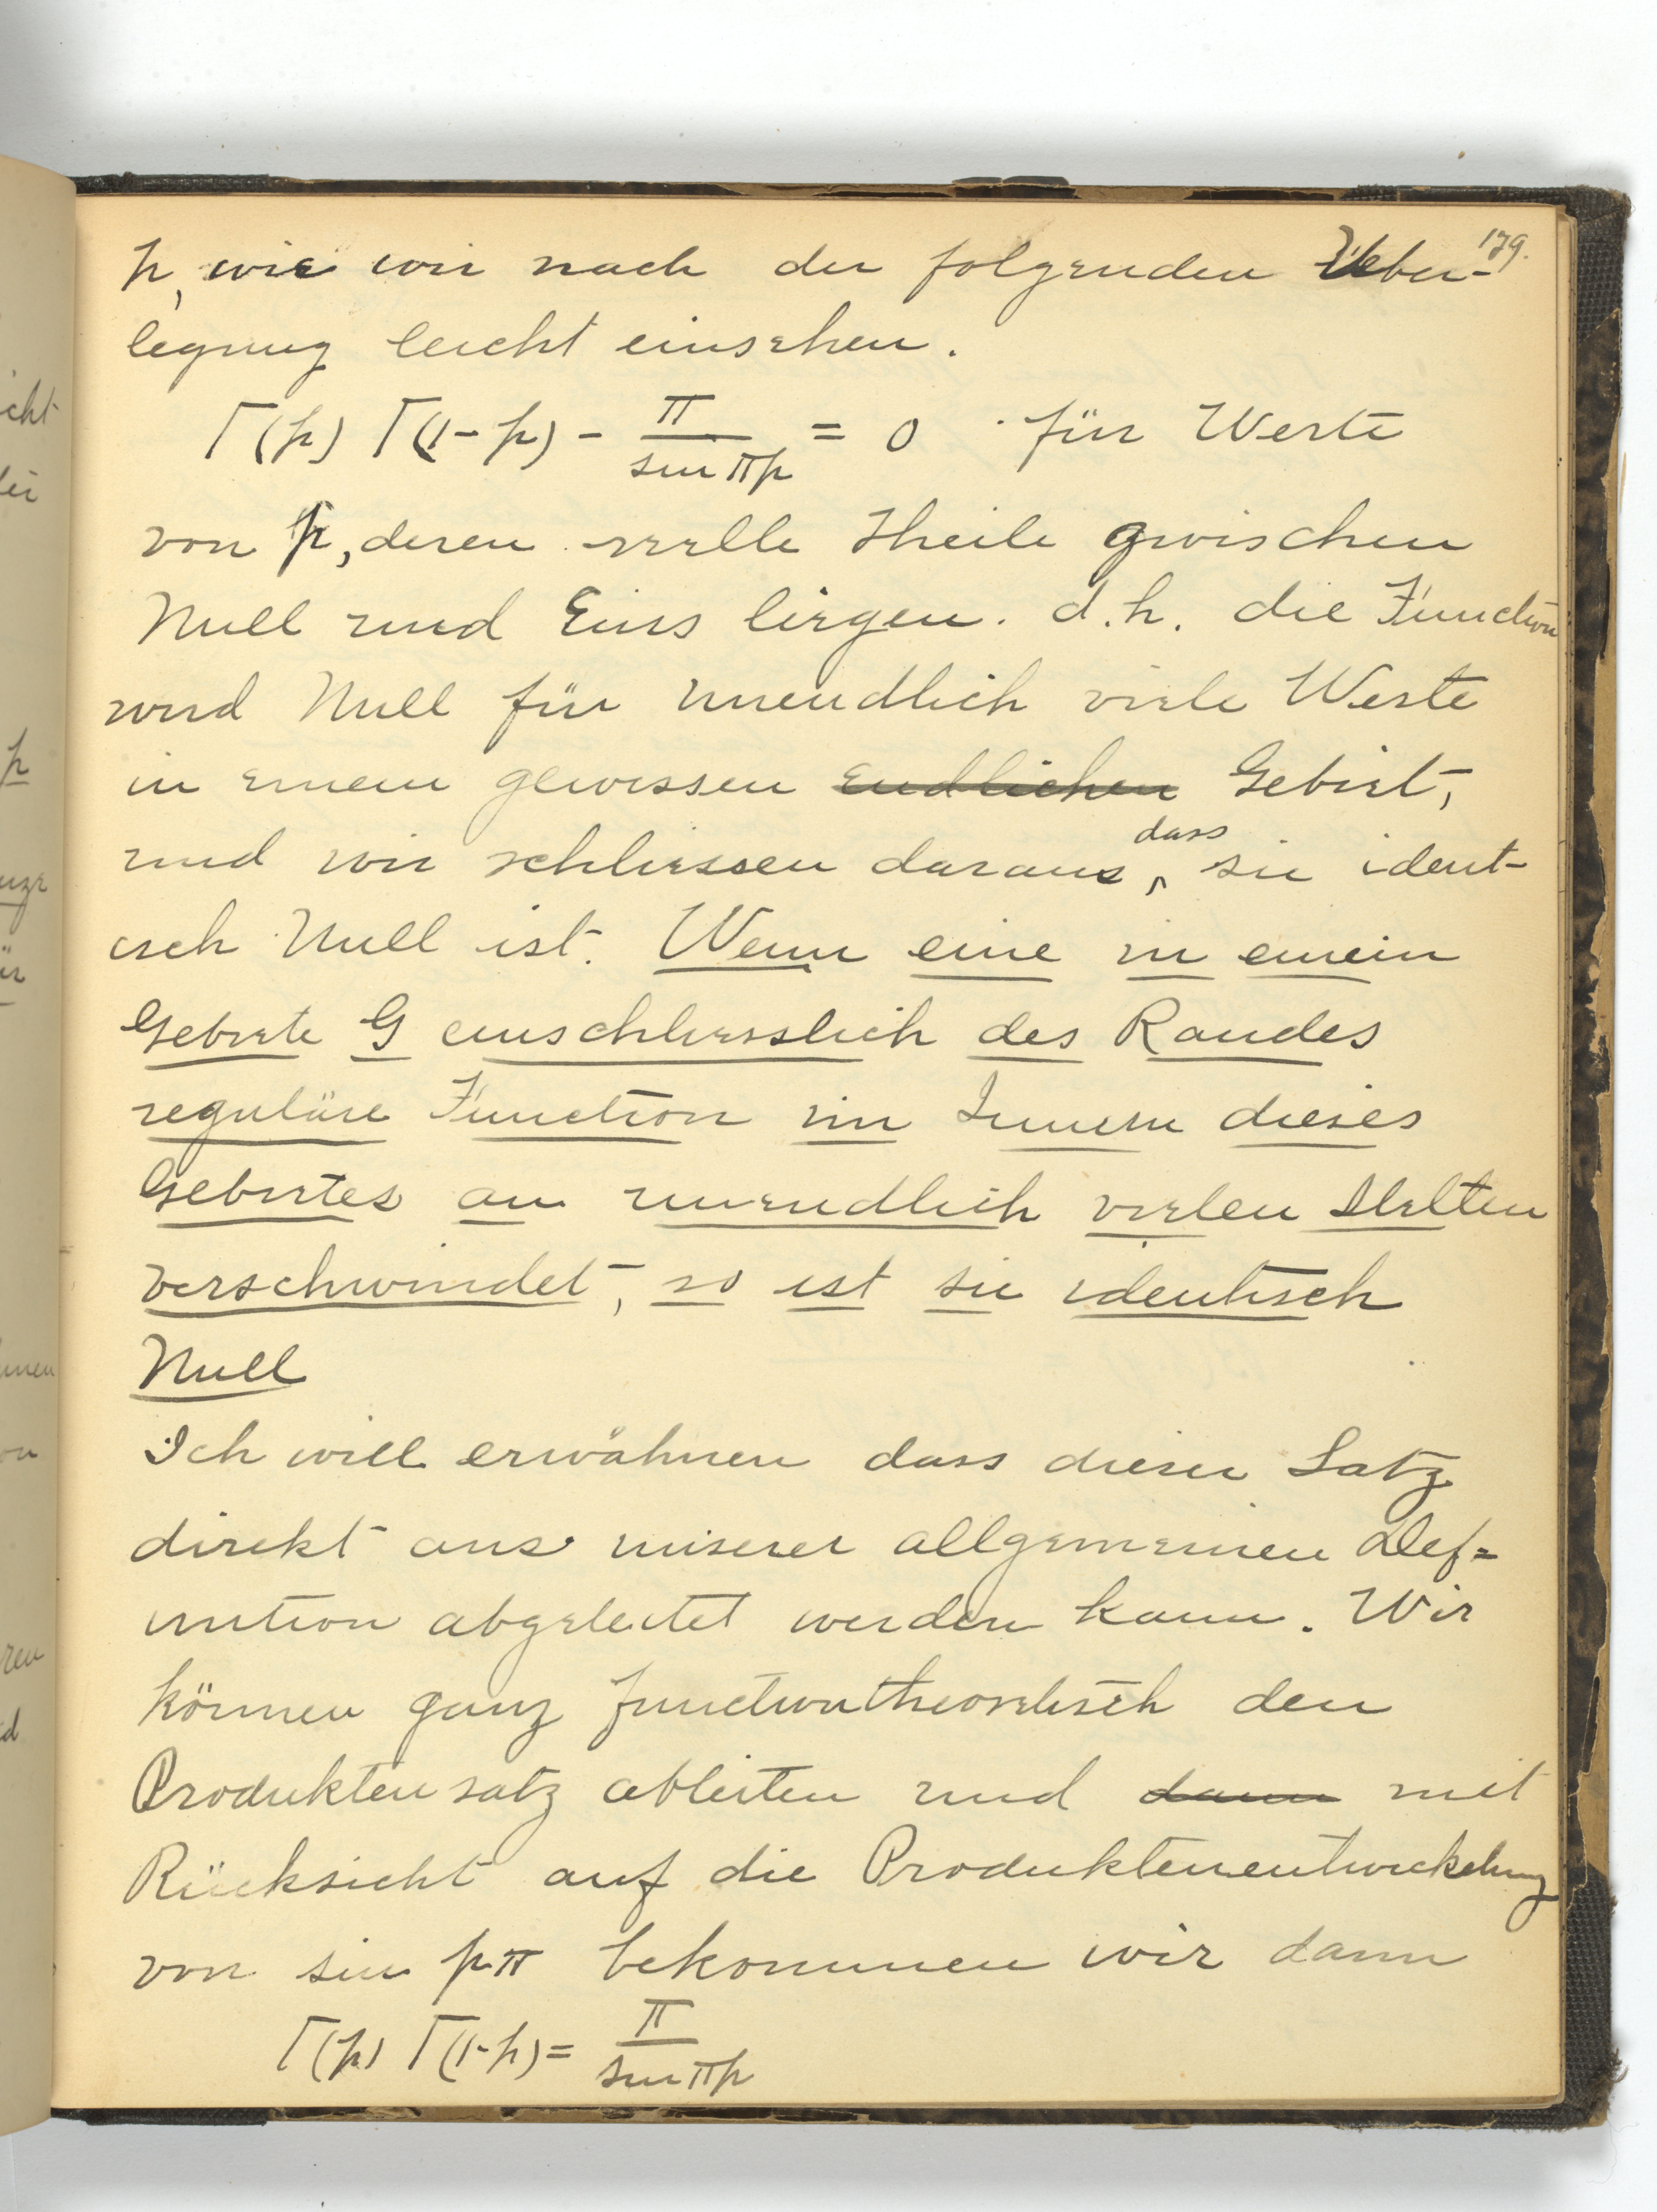 179.
p, wie wir nach der folgenden Ueber-
legung leicht einsehen.
Γ(p) Γ(1-p) - π/sin πp = 0 für Werte
von p, deren reelle Theile zwischen
Null und Eins liegen. d.h. die Function
wird Null für unendlich viele Werte
in einem gewissen endlichen Gebiet,
und wir schliessen daraus, dass sie ident-
isch Null ist. Wenn eine in einem
Gebiete G einschliesslich des Randes
reguläre Function im Innern dieses
Gebietes an unendlich vielen Stellen
verschwindet, so ist sie identisch
Null
Ich will erwähnen dass dieser Satz
direkt aus unserer allgemeinen Def=
inition abgeleitet werden kann. Wir
können ganz functiontheoretisch den
Produktensatz ableiten und dann mit
Rücksicht auf die Produktenentwickelung
von sin pπ bekommen wir dann
Γ(p) Γ(1-p) = π/sin πp